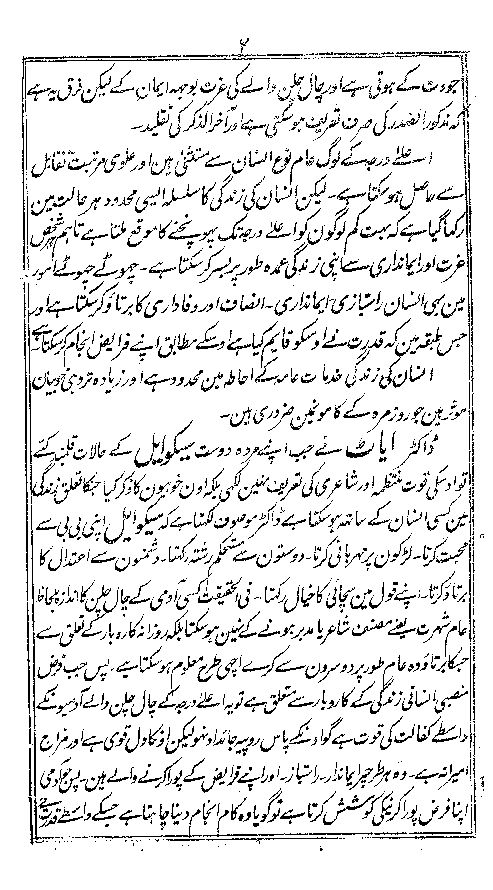 ۲
اجودت کے ہوتی ہے اور چال چلن والے کی عزت بوجہہ ایمان کے لیکن فرق یہ ہے
کہ مذکور الصدر کی صرف تعریف ہوسکتی ہے اور آخر الذکر کی تقلید۔
اعلےٰ درجہ کے لوگ عام نوع انسان سے مستثنیٰ ہین اور علوی مرتبت تقابل
سے حاصل ہوسکتا ہے۔ لیکن انسان کی زندگی کا سلسلہ ایسی محدود ہر حالت مین
رکھا گیا ہے کہ بہت کم لوگون کو اعلےٰ درجہ تک پہونچنے کا موقع ملتا ہے تاہم ہر شخص
عزت اور ایمانداری سے اپنی زندگی عمدہ طور پر بسر کرسکتا ہے۔ چھوٹے چھوٹے امور
مین بھی انسان راستبازی ایمانداری۔ انصاف اور وفاداری کا برتاؤ کرسکتا ہے اور
جس طبقہ مین کہ قدرت نے اوسکو قایم کیا ہے اوسکے مطابق اپنے فرایض انجام کرسکتا ہے۔
انسان کی زندگی خدمات عامہ کے احاطہ مین محدود ہے اور زیادہ تر وہی خوبیان
موثر ہین جو روزمرہ کے کامونمین ضروری ہین۔
ڈاکٹر ایاٹ نے جب اپنے مردہ دوست سیکوایل کے حالات قلمبند کئے
تو اوسکی قوت متخیلہ اور شاعری کی تعریف نہین لکھی بلکہ اون خوبیون کا ذکر کیا جنکا تعلق زندگی
مین کسی انسان کے ساتھ ہوسکتا ہے ڈاکٹر موصوف لکھتا ہے کہ سیکوایل اپنی بی بی سے
محبت کرتا۔ لڑکون پر مہربانی کرتا۔ دوستون سے مستحکم رشتہ رکھتا۔ دشمنون سے اعتدال کا
برتاؤ کرتا۔ اپنے قول مین سچائی کا خیال رکھتا۔ فی الحقیقت کسی آدمی کے چال چلن کا اندازہ پیمانہ
عام شہرت یعنے مصنف شاعر یا مدبر ہونے کے نہین ہوسکتا بلکہ روزانہ کاروبار کے تعلق سے
جسکا برتاؤ وہ عام طور پر دوسرون سے کرے اچھی طرح معلوم ہوسکتا ہے۔ پس جب فرض
منصبی انسانی زندگی کے کاروبار سے متعلق ہے تو یہ اعلےٰ درجہ کے چال چلن والے آدمیونکے
واسطے کفالت کی قوت ہے گو اونکے پاس روپیہ جائداد نہو لیکن اونکا دل قوی ہے اور مزاج
امیرانہ ہے۔ وہ ہر طرح پر ایماندار۔ راستباز۔ اور اپنے فرایض کے پورا کرنے والے ہین۔ پس جو آدمی
اپنا فرض پورا کرنیکی کوشش کرتا ہے تو گویا وہ کام انجام دینا چاہتا ہے جسکے واسطے قدرت نے